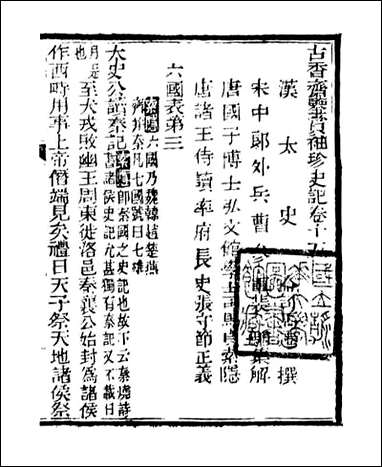 古香齋鑒賞袖珍史記卷十五
漢太史 撰
宋中郎外兵曹 集解
唐國子博士弘文館學士司馬貞索隱
唐諸王侍讀率府長史張守節正義
六國表第三
索隱六國乃魏韓趙楚燕
齊幷秦凡七國號曰七雄
太史公讀秦記索隱即秦國之史記也故下云秦燒詩
書諸侯史記尤甚獨有秦記又不載日
月是
也至犬戎敗幽王周東徙洛邑秦襄公始封爲諸侯
作西畤用事上帝僭端見矣禮曰天子祭天地諸侯祭